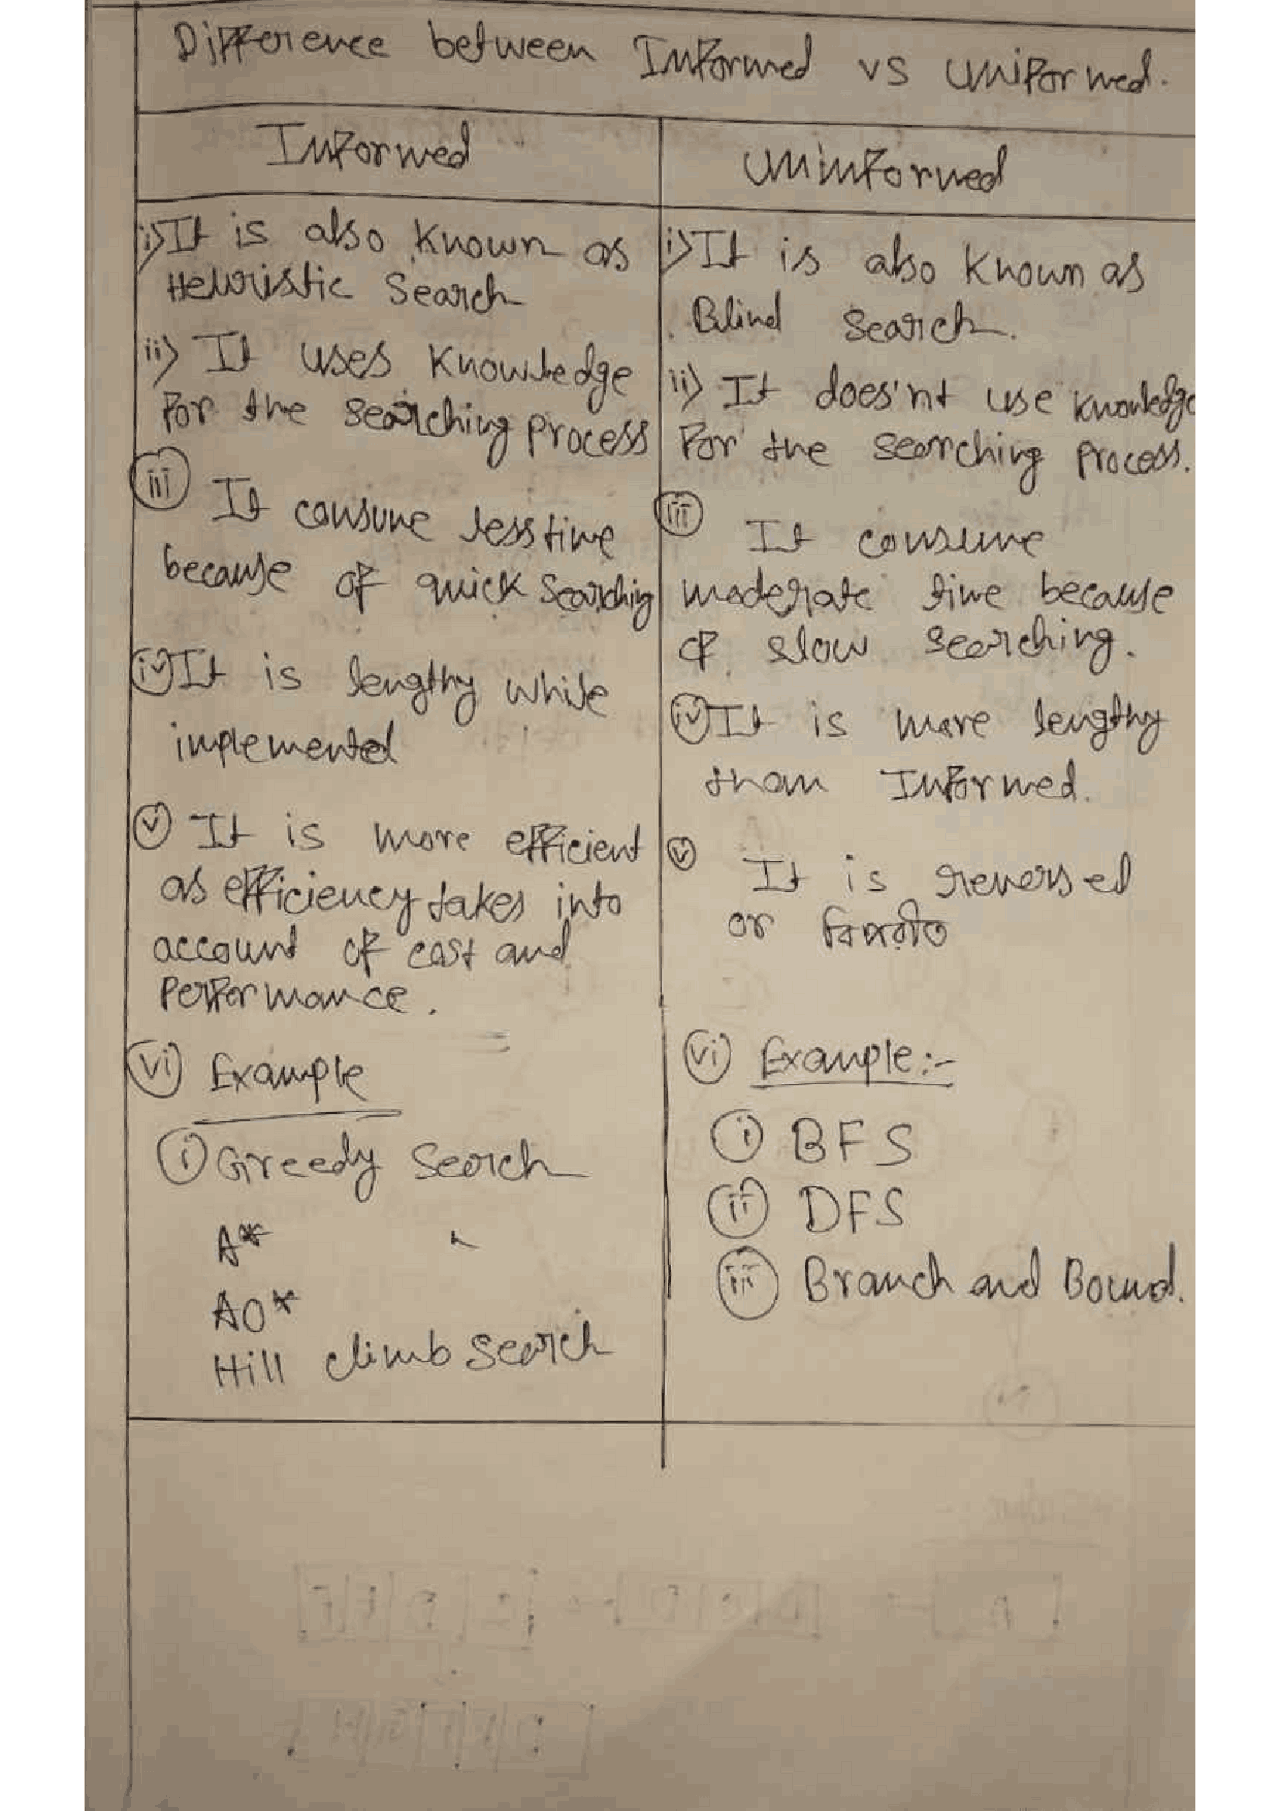 Difference between Informed vs Uniformed.
Informed
i) It is also known as
Heuristic Search
ii) It uses Knowledge
for the searching process
iii) It consume less time
because of quick searching
iv) It is lengthy while
implemented
v) It is more efficient
as efficiency takes into
account of cost and
Performance.
vi) Example
i) Greedy Search
A*
AO*
Hill climb Search
Uninformed
i) It is also known as
Blind Search.
ii) It does'nt use knowledge
for the searching process.
iii) It consume
moderate time because
of slow searching.
iv) It is more lengthy
than Informed.
v) It is reversed
or বিপরীত
vi) Example:-
i) BFS
ii) DFS
iii) Branch and Bound.